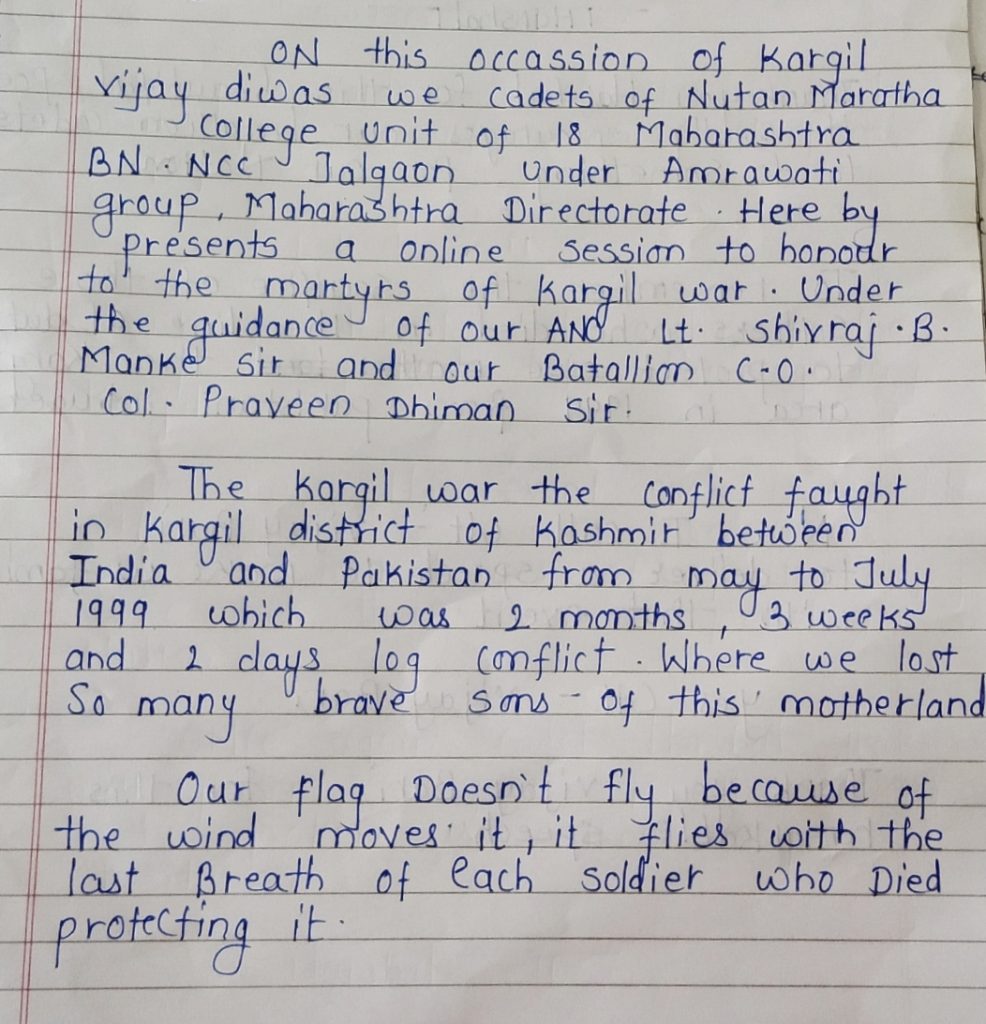 ON this occassion of Kargil
Vijay diwas we cadets of Nutan Maratha
College unit of 18 Maharashtra
BN. NCC Jalgaon under Amrawati
group, Maharashtra Directorate. Here by
presents a online session to honour
to the martyrs of Kargil war. Under
the guidance of our ANO Lt. Shivraj.B.
Manke sir and our Batallion C.O.
Col. Praveen Dhiman Sir.
The Kargil war the conflict faught
in Kargil district of Kashmir between
India and Pakistan from may to July
1999 which was 2 months, 3 weeks
and 2 days log conflict. Where we lost
So many brave sons of this motherland
Our flag Doesn't fly because of
the wind moves it, it flies with the
last Breath of each soldier who Died
protecting it.